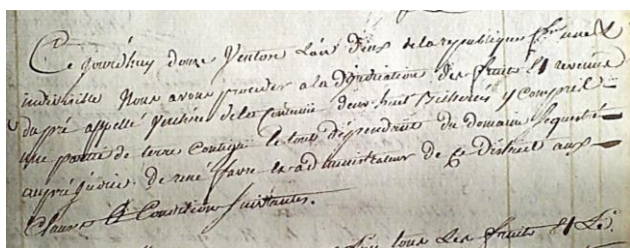 Ce jourd'huy douze Ventose L'an deux de la republique f.se une &
indivisible Nous avons proceder a la Djudication des fruits Et revenus
du pré appellé de la Contenue deux huit Bicherées y Compril
une partie de terre Contigue le tout dépendant du domaine Sequestré
au préjudice de rené favre Ex administrateur de Ce District aux
Clauses Et Conditions Suivantes.
tous Les fruits Et Le